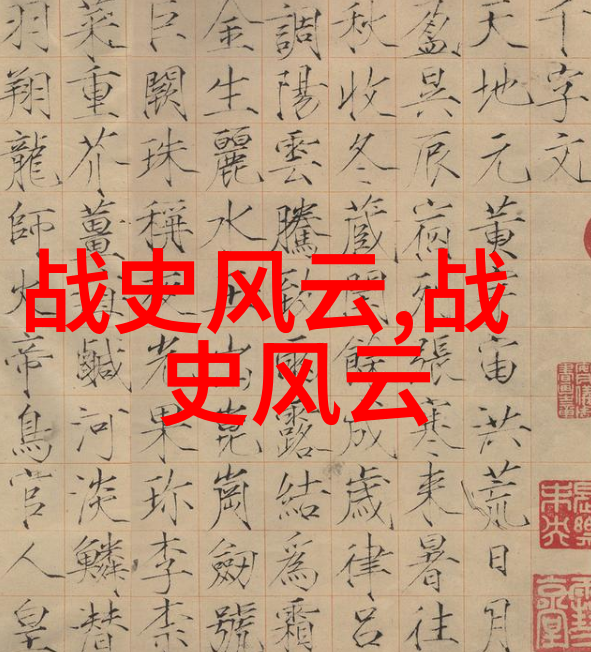 战史风云,战
史风云
千字文
天地元黄宇宙洪荒日月
盈昃辰宿列張寒来暑往
秋收冬蔵閏餘成歳律吕
調陽雲騰致雨露結為霜
金生麗水玉出崑崗劒號
巨闕珠稱夜光果珍李柰
菜重芥薑海鹹河淡鱗潜
羽翔龍師火帝鳥官人皇